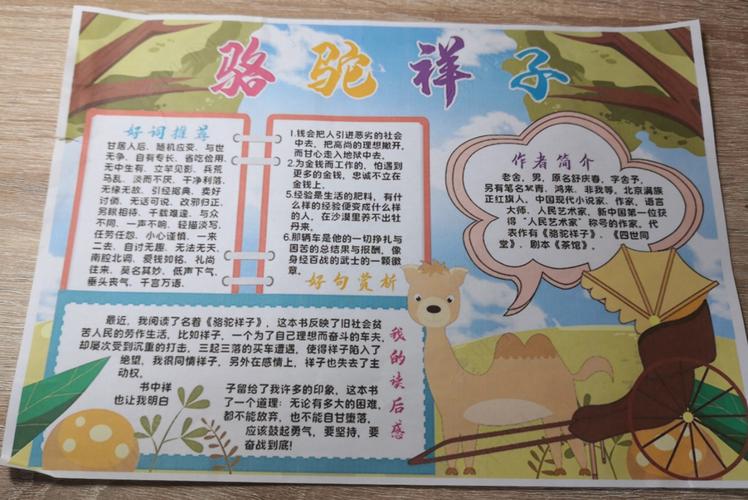 骆驼祥子
好词推荐
甘居人后、随机应变、与世
无争、自有专长、省吃俭用、
无中生有、立竿见影、兵荒
马乱、淡而不厌、干净利落、
无缘无故、引经据典、卖好
讨俏、无话可说、改邪归正、
另眼相待、千载难逢、与众
不同、一声不响、轻描淡写、
任劳任怨、小心谨慎、一来
二去、自讨无趣、无法无天、
南腔北调、爱钱如铭、礼尚
往来、莫名其妙、低声下气、
垂头丧气、千言万语、
1.钱会把人引进恶劣的社会
中去，把高尚的理想撇开，
而甘心走入地狱中去。
2.为金钱而工作的，怕遇到
更多的金钱，忠诚不立在
金钱上。
5.经验是生活的肥料，有什
么样的经验便变成什么样
的人，在沙漠里养不出牡
丹来。
6.那辆车是他的一切挣扎与
困苦的总结果与报酬，像
身经百战的武士的一颗徽
章。
好句赏析
作者简介
老舍，男，原名舒庆春，字舍予，
另有笔名絜青、鸿来、非我等，北京满族
正红旗人，中国现代小说家、作家，语言
大师、人民艺术家，新中国第一位获
得“人民艺术家”称号的作家。代
表作有《骆驼祥子》、《四世同
堂》、剧本《茶馆》。
最近，我阅读了名着《骆驼祥子》，这本书反映了旧社会贫
苦人民的劳作生活，比如祥子，一个为了自己理想而奋斗的车夫，
却屡次受到沉重的打击，三起三落的买车遭遇，使得祥子陷入了
绝望，我很同情祥子，另外在感情上，祥子也失去了主
动权。
书中祥 子留给了我许多的印象，这本书
也让我明白 了一个道理：无论有多大的困难，
都不能放弃，也不能自甘堕落，
应该鼓起勇气，要坚持，要
奋战到底！
我的读后感